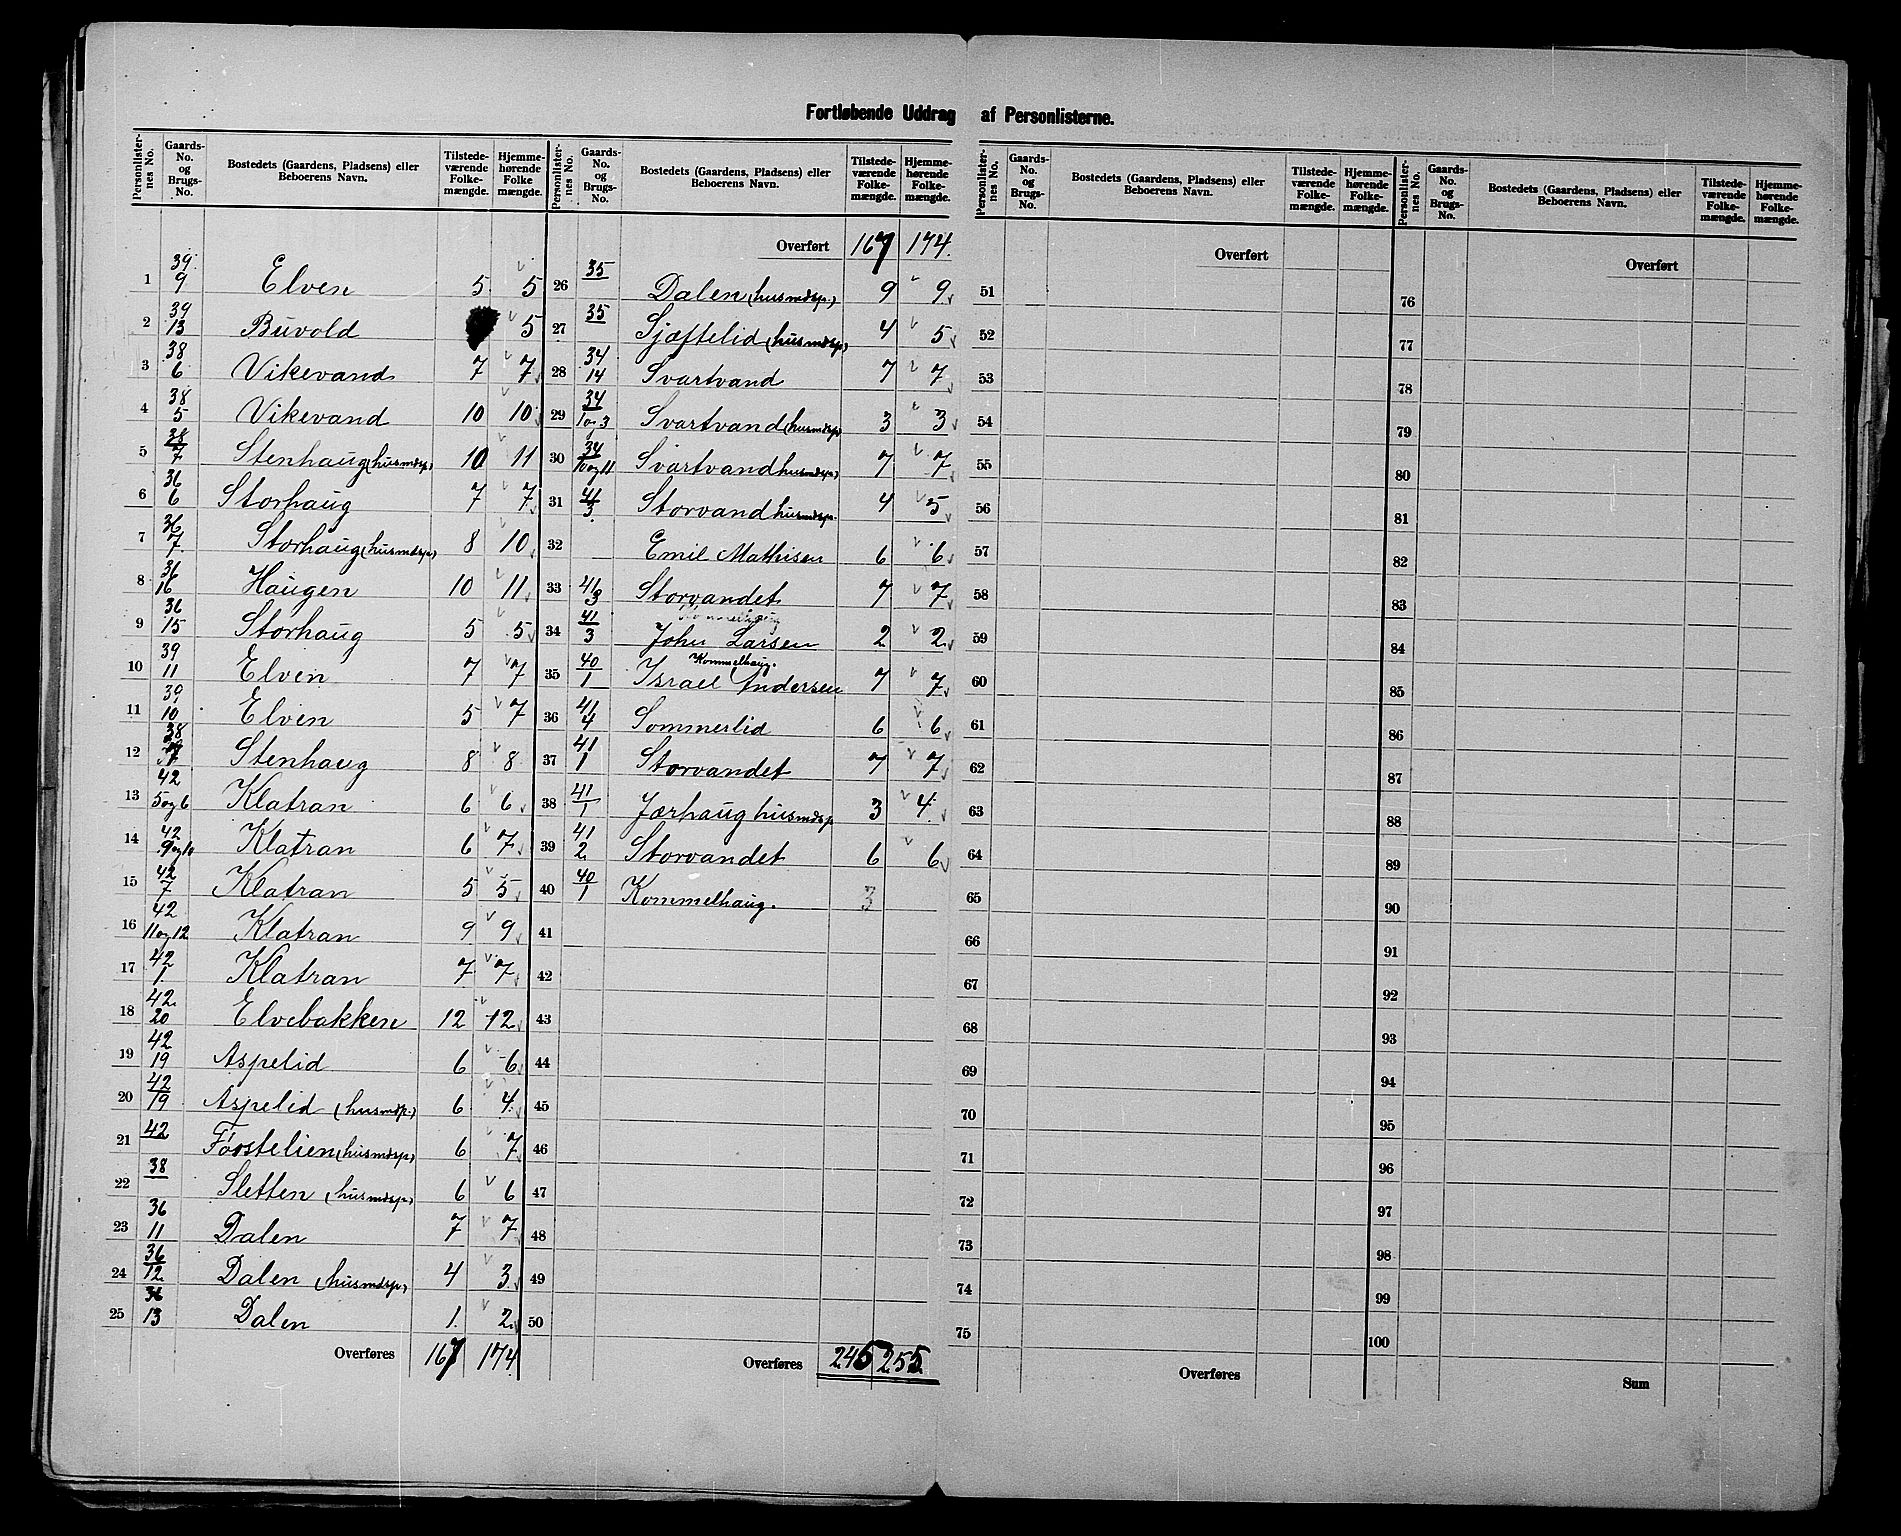 Fortløbende Uddrag af Personlisterne.
Personlister-nes No. | Gaards-No. og Brugs-No. | Bostedets (Gaardens, Pladsens) eller Beboerens Navn. | Tilstede-værende Folke-mængde. | Hjemme-hørende Folke mængde.
1 | 39. 9 | Elven | 5 | 5
2 | 39 13 | Buvold | | 5
3 | 38 6 | Vikevand | 7 | 7
4 | 38 5 | Vikevand | 10 | 10
5 | 38 7 | Stenhaug (husmdsp.) | 10 | 11
6 | 36 6 | Storhaug | 7 | 7
7 | 36 7. | Storhaug (husmdsp.) | 8 | 10
8 | 36 16 | Haugen | 10 | 11
9 | 36 15 | Storhaug | 5 | 5
10 | 39 11 | Elven | 7 | 7
11 | 39 10 | Elven | 5 | 7
12 | 38 | Stenhaug | 8 | 8
13 | 42 5 og 6 | Klatran | 6 | 6
14 | 42 9 og 10 | Klatran | 6 | 7
15 | 42 7 | Klatran | 5 | 5
16 | 42 11 og 12 | Klatran | 9 | 9
17 | 42 1. | Klatran | 7 | 7
18 | 42. 20 | Elvebakken | 12 | 12
19 | 42 19 | Aspelid | 6 | 6
20 | 42 19 | Aspelid (husmdsp.) | 6 | 4
21 | 42 | (husmdsp.) | 6 | 7
22 | 38 | Sletten (husmdsp.) | 6 | 6
23 | 36 11 | Dalen | 7 | 7
24 | 36 12 | Dalen (husmdsp.) | 4 | 3
25 | 36 13 | Dalen | 1. | 2
Overføres 167 174
Personlister-nes No. | Gaards-No. og Brugs-No. | Bostedets (Gaardens, Pladsens) eller Beboerens Navn. | Tilstede-værende Folke-mængde. | Hjemme-hørende Folke-mængde.
Overført 167 174.
26 | 35 | Dalen (husmdsp.) | 9 | 9
27 | 35 | Sjæftelid (husmdsp) | 4 | 5
28 | 34 14 | Svartvand | 7 | 7
29 | 34 1 og 3 | Svartvand (husmdsp) | 3 | 3
30 | 34 10 og 11 | Svartvand husmdsp) | 7 | 7
31 | 41 3 | Storvand husmdsp. | 4 | 5
32 | Emil Mathisen | 6 | 6
33 | 41 3 | Storvandet | 7 | 7
34 | 41 3 | John Larsen | 2 | 2
Kommelhaug.
35 | 40 1 | Israel Andersen | 7 | 7
36 | 41 4 | Sommerlid | 6 | 6
37 | 41 1 | Storvandet | 7 | 7
38 | 41 1 | Jærhaug husmdsp | 3 | 4
39 | 41 2 | Storvandet | 6 | 6
40 | 40 1 | Kommelhaug. | 3
41
42
43
44
45
46
47
48
49
50
Overføres 245 255
Personlister-nes No. | Gaards-No. og Brugs-No. | Bostedets (Gaardens, Pladsens) eller Beboerens Navn. | Tilstede-værende Folke-mængde. | Hjemme-hørende Folke-mængde.
Overført
51
52
53
54
55
56
57
58
59
60
61
62
63
64
65
66
67
68
69
70
71
72
73
74
75
Overføres
Personlister-nes No. | Gaards-No. og Brugs-No. | Bostedets (Gaardens, Pladsens) eller Beboerens Navn. | Tilstede-værende Folke-mængde. | Hjemme-hørende Folke-mængde.
Overført
76
77
78
79
80
81
82
83
84
85
86
87
88
89
90
91
92
93
94
95
96
97
98
99
100
Sum